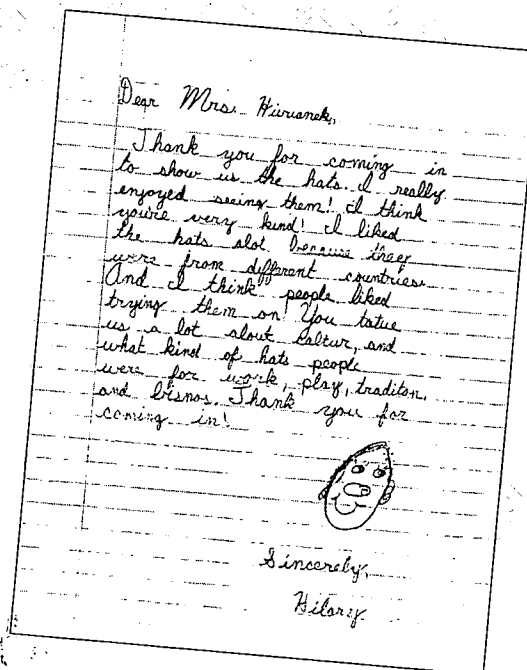 Dear Mrs. Hivranek,
Thank you for coming in
to show us the hats. I really
enjoyed seeing them! I think
you're very kind! I liked
the hats alot because they
were from different countries.
And I think people liked
trying them on! You tatue
us a lot about caltur, and
what kind of hats people
were for work, play, traditon,
and bisnos. Thank you for
coming in!
Sincerely,
Hilary